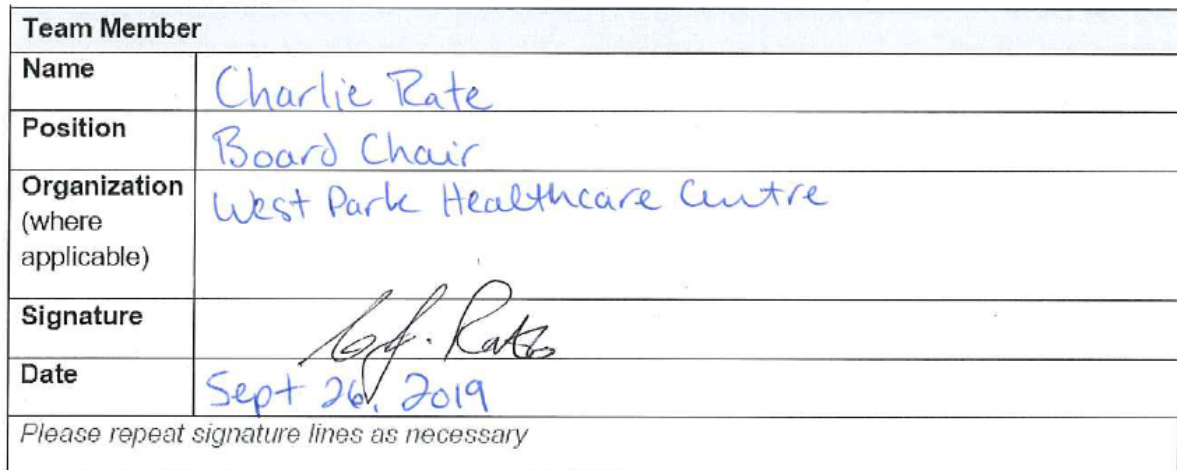 Team Member
Name Charlie Rate
Position Board Chair
Organization West Park Healthcare Centre
(where
applicable)
Signature
Date Sept 26, 2019
Please repeat signature lines as necessary